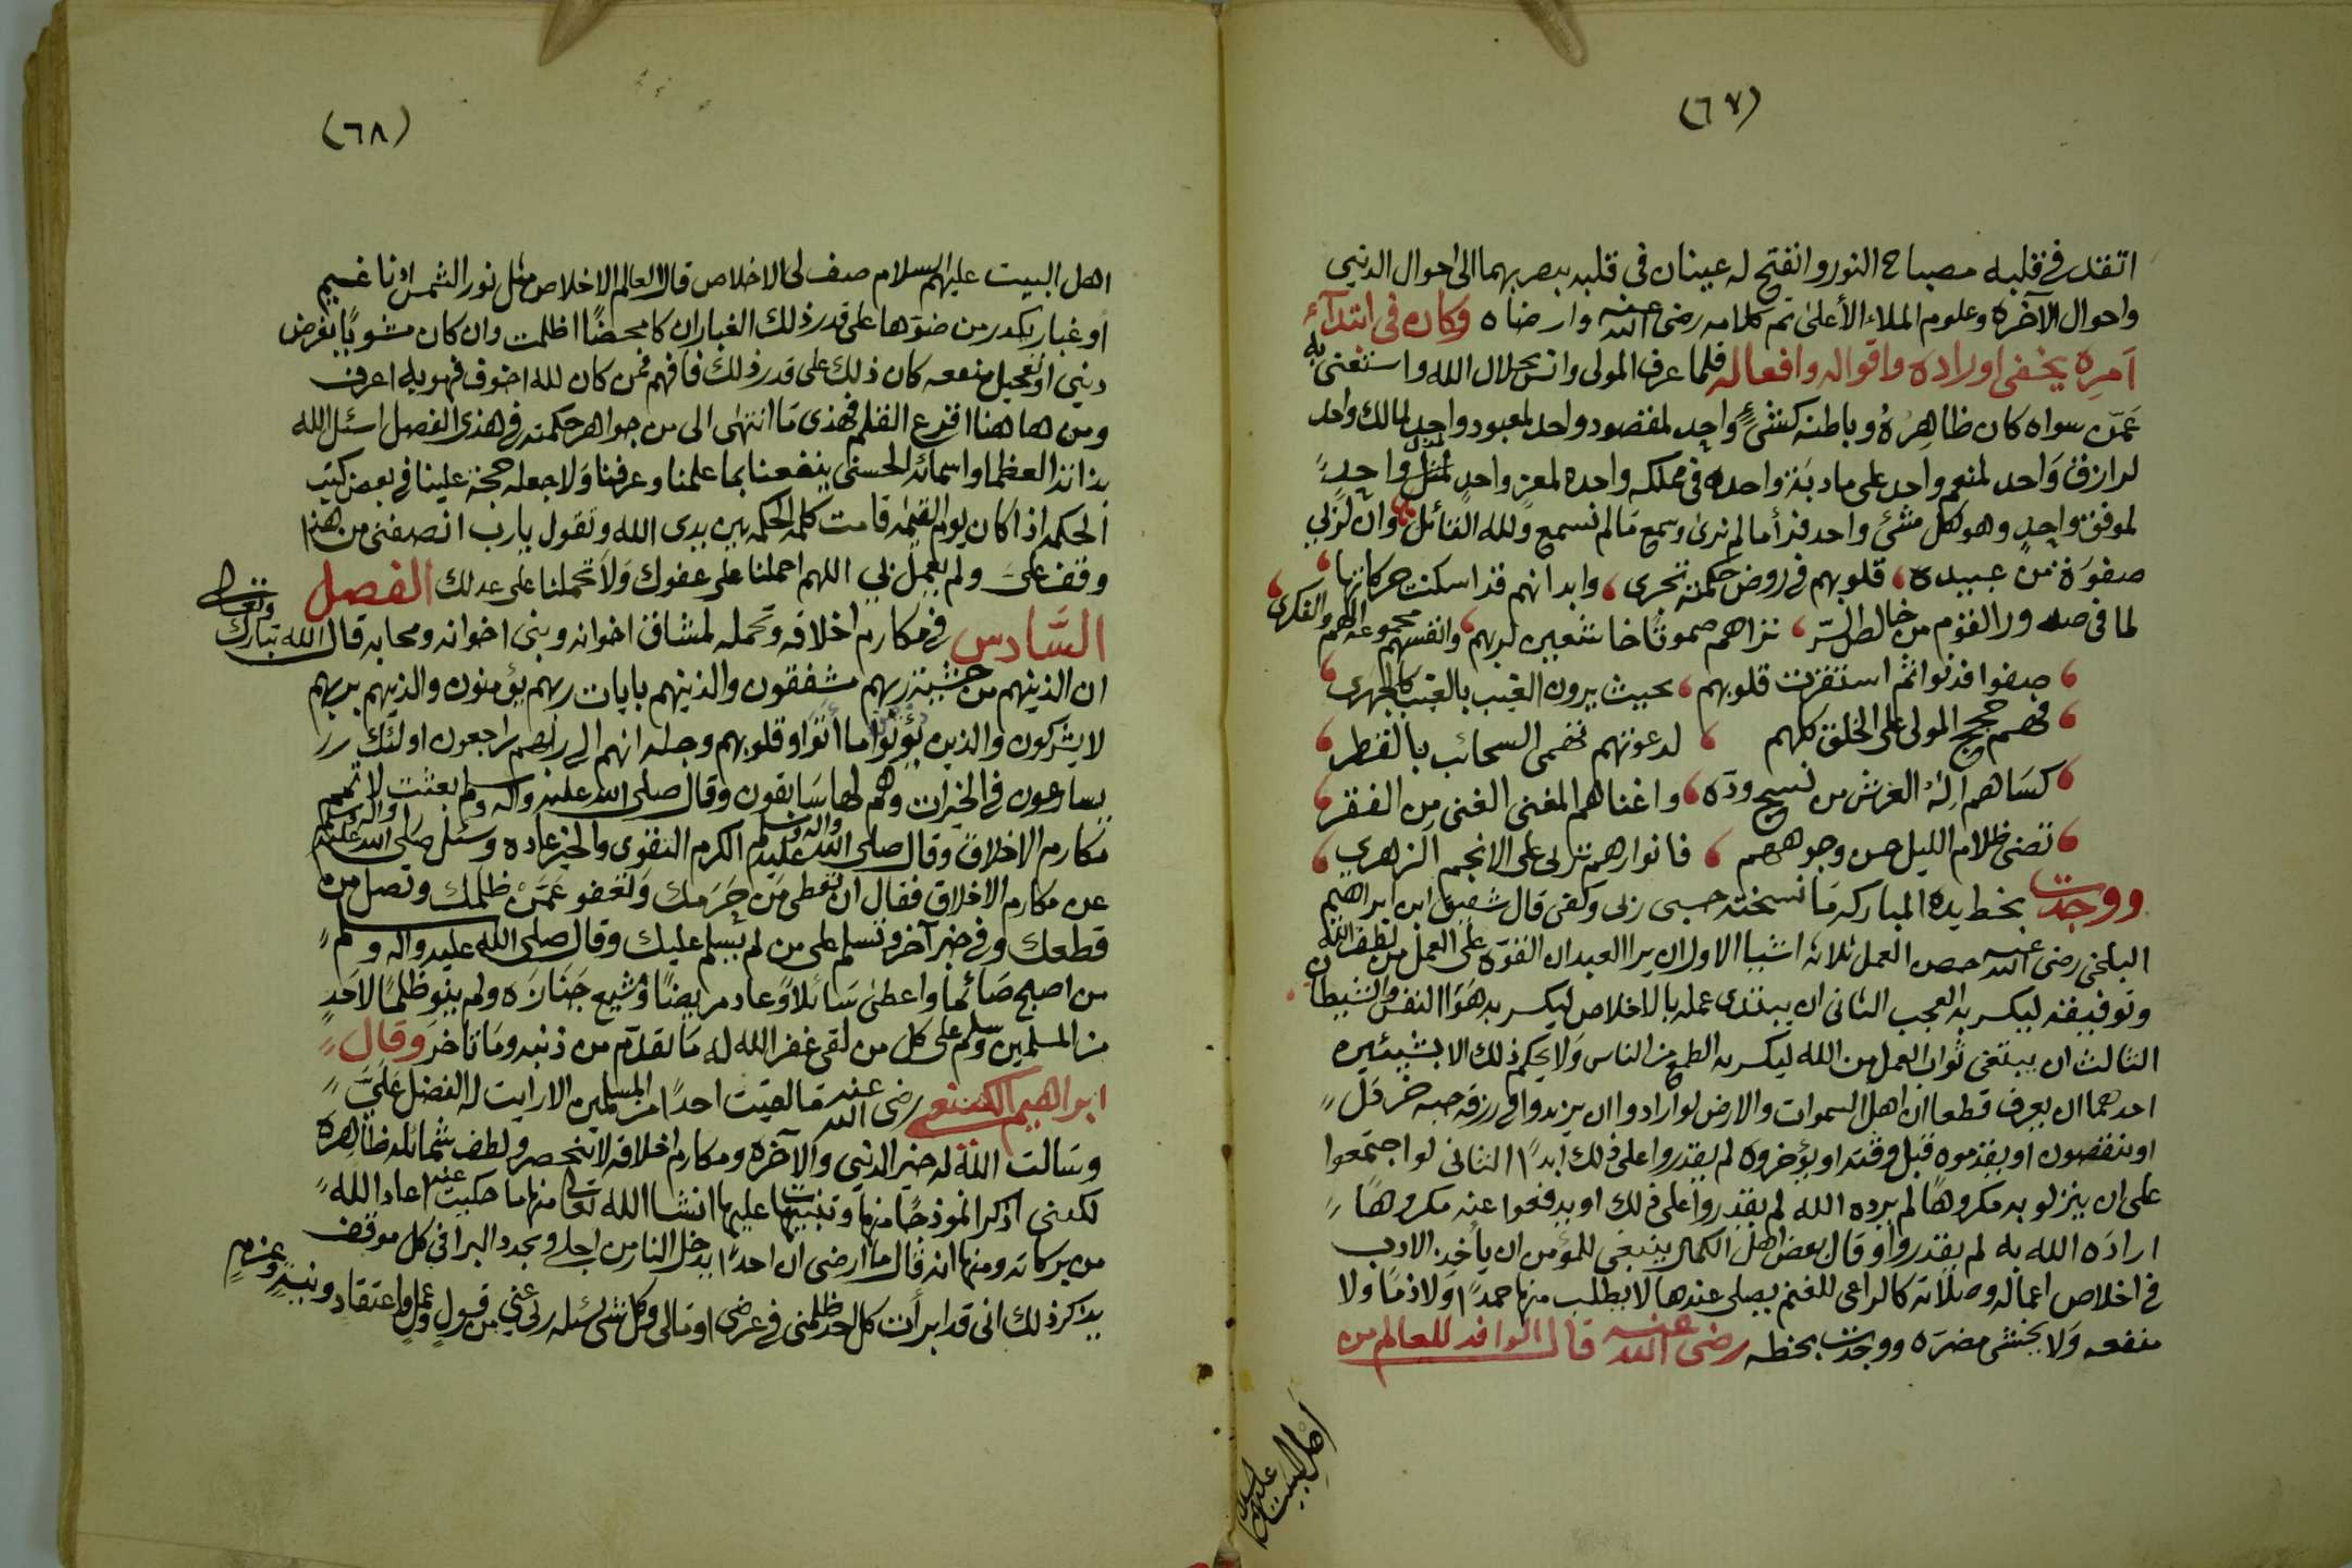 (٦٧)
اتقد في قلبه مصباح النور وانفتح له عينان في قلبه يبصر بهما الى احوال الدنيى
واحوال الآخره وعلوم الملاء الأعلى تم كلامه رضى الله عنه وارضاه وكان في ابتدآء
امره يخفى اوراده واقواله وافعاله فلما عرف المولى وانس بجلال الله واستغنى به
عمّن سواه كان ظاهره وباطنه كشئٍ واحد لمقصود واحد لمعبود واحد لمالك واحد
لرازق واحد لمنعم واحد على مادبة واحده في مملكه واحده لمعز واحد لمذل واحدٍ
لموفق واحدٍ وهو لكل مشئ واحد فرأ ما لم نرى وسمع ما لم نسمع ولله القائل وان لربي
صفوة من عبيده قلوبهم في روض حكمته تجرى وابدانهم قد اسكنت حركاتها
لما في صدور القوم من خالط السّر تراهم صموتًا خاشعين لربهم وانفسهم مجموعة الهم والفكرى
صفوا فدنوا ثم استقرت قلوبهم بحيث يرون الغيب بالغيب كالجهرى
فهم حجج المولى على الخلق كلهم لدعوتهم تهمى السحائب بالقطر
كساهم اله العرش من نسيج ودّه واغناهم المغنى الغنى من الفقر
تضى ظلام الليل حسن وجوههم فانوارهم تربى على الانجم الزهري
ووجدت بخط يده المباركه ما نسخته حسبى ربى وكفى قال شقيق ابن ابراهيم
البلخى رضى الله عنه حصن العمل ثلاثه اشيا الاول ان يرا العبد ان القوّه على العمل من لطف الله
وتوفيقه ليكسر به العجب الثانى ان يبتدى عمله بالاخلاص ليكسر به هوا النفس والشيطان
الثالث ان يبتغى ثواب العمل من الله ليكسر به الطمع من الناس ولا يحكم ذلك الا بشيئين
احدهما ان يعرف قطعا ان اهل السموات والارض لو ارادوا ان يزيدوا في رزقه حبه خردل
او ينقصون او يقدموه قبل وقته او يؤخروه لم يقدروا على ذلك ابدًا الثانى لو اجتمعوا
على ان ينزلو به مكروهًا لم يرده الله لم يقدروا على ذلك او يدفعوا عنه مكروهًا
اراده الله به لم يقدروا وقال بعض اهل الكمال ينبغى للمؤمن ان يأخذ الادب
في اخلاص اعماله وصلاته كالراعى للغنم يصلى عندها لا يطلب منها حمدًا ولا ذمًا ولا
منفعه ولا يخشى مضره ووجدت بخطه رضى الله عنه قال الوافد للعالم من
اهل البيت عليهم السلام
(٦٨)
اهل البيت عليهم السلام صف لى الاخلاص قال العالم الاخلاص مثل نور الشمس ادنا غيم
او غبار يكدر من ضوها على قدر ذلك الغبار ان كا محضًا اظلمت وان كان مشوبًا بغرض
دنيى او تعجيل منفعه كان ذلك على قدر ذلك فافهم فمن كان لله اخوف فهو به اعرف
ومن ها هنا اقرع القلم فهذى ما انتهى الى من جواهر حكمته في هذى الفصل اسئل الله
بذاته العظما واسمائه الحسنى ينفعنا بما علمنا وعرفنا ولا جعله حجة علينا في بعض كتب
الحكمه اذا كان يوم القيمه قامت كلمه الحكمه بين يدى الله وتقول يا رب انصفنى من هذا
وقف على ولم يعمل بي اللهم احملنا على عفوك ولا تحملنا على عدلك الفصل
السّادس في مكارم اخلاقه وتحمله لمشاق اخوانه وبنى اخوانه ومحابه قال الله تبارك وتعالى
ان الذينهم من خشية ربهم مشفقون والذينهم بايات ربهم يؤمنون والذينهم بربهم
لا يشركون والذين يؤتوا ما اتوا وقلوبهم وجله انهم الى ربهم راجعون اولئك
يسارعون في الخيرات وهم لها سابقون وقال صلى الله عليه وآله وسلم بعثت لاتمم
مكارم الاخلاق وقال صلى الله عليه وآله وسلم الكرم التقوى والخير عاده وسئل صلى الله عليه وآله وسلم
عن مكارم الاخلاق فقال ان تعطى من حرمك وتعفو عمّن ظلمك وتصل من
قطعك وفي خبر آخر وتسلم على من لم يسلم عليك وقال صلى الله عليه وآله وسلم
من اصبح صائما واعطى سائلا وعاد مريضًا وشيع جنازه ولم ينو ظلمًا لاحدٍ
من المسلمين وسلم على كل من لقى غفر الله له ما تقدّم من ذنبه وما تاخر وقال
ابراهيم الكينعي رضى الله عنه ما لقيت احدًا من المسلمين الا رايت له الفضل عليّ
وسالت الله له خير الدنيى والآخره ومكارم اخلاقه لا تنحصر ولطف شمائله ظاهره
لكننى اذكر انموذجًا منها وتنبيهًا عليها انشا الله تعالى منها ما حكيت عنه اعاد الله
من بركاته ومنها انه قال ما ارضى ان احدًا يدخل النار من اجلى ويجدد البرا في كل موقف
يذكر ذلك انى قد ابرأت كل احد ظلمنى في عرضى او مالى وكل شى يسئله ربى عني من قولٍ وعملٍ واعتقادٍ ونيةٍ وعزمٍ